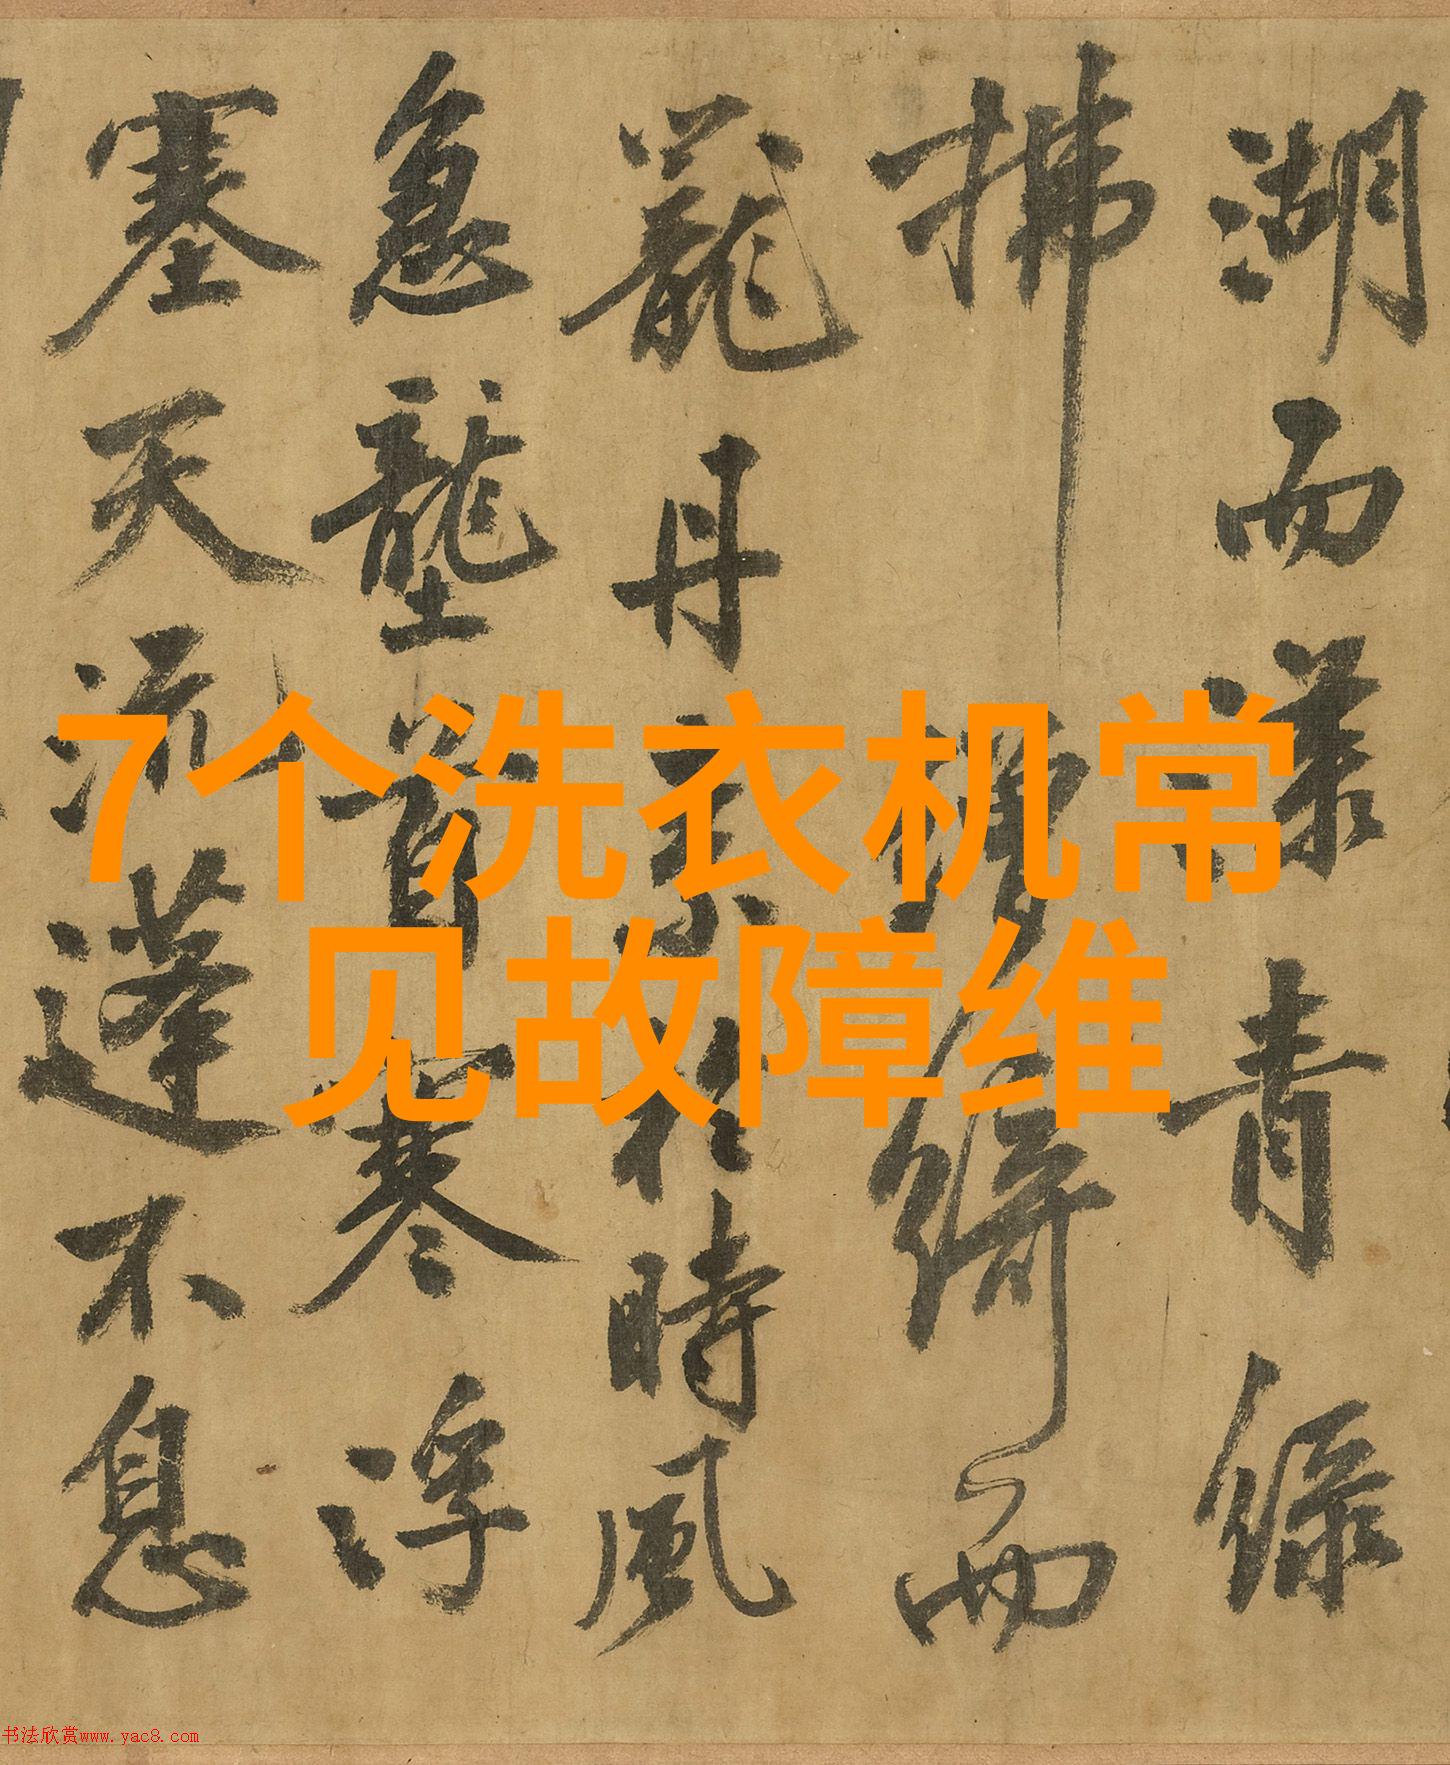 湖而漾青綠
拂繒綺而
籠丹素於時風
急壟首寒浮
塞天流蓬不息
7个洗衣机常
见故障维
书法欣赏www.yac8.com